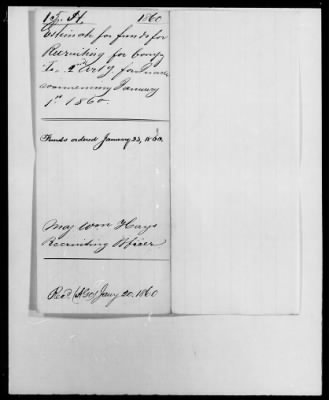 15. H. 1860
Estimate for funds for
Recruiting for Comp.
"A" 2nd Arty for
commencing January
1st 1860.
Funds ordered January 23, 1860.
Maj Wm Hays
Recruiting Officer
Recd (AGO) Jany 20. 1860